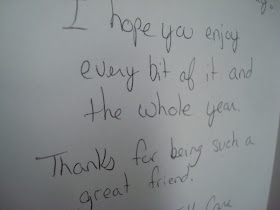 I hope you enjoy
every bit of it and
the whole year.
Thanks for being such a
great friend.
Care